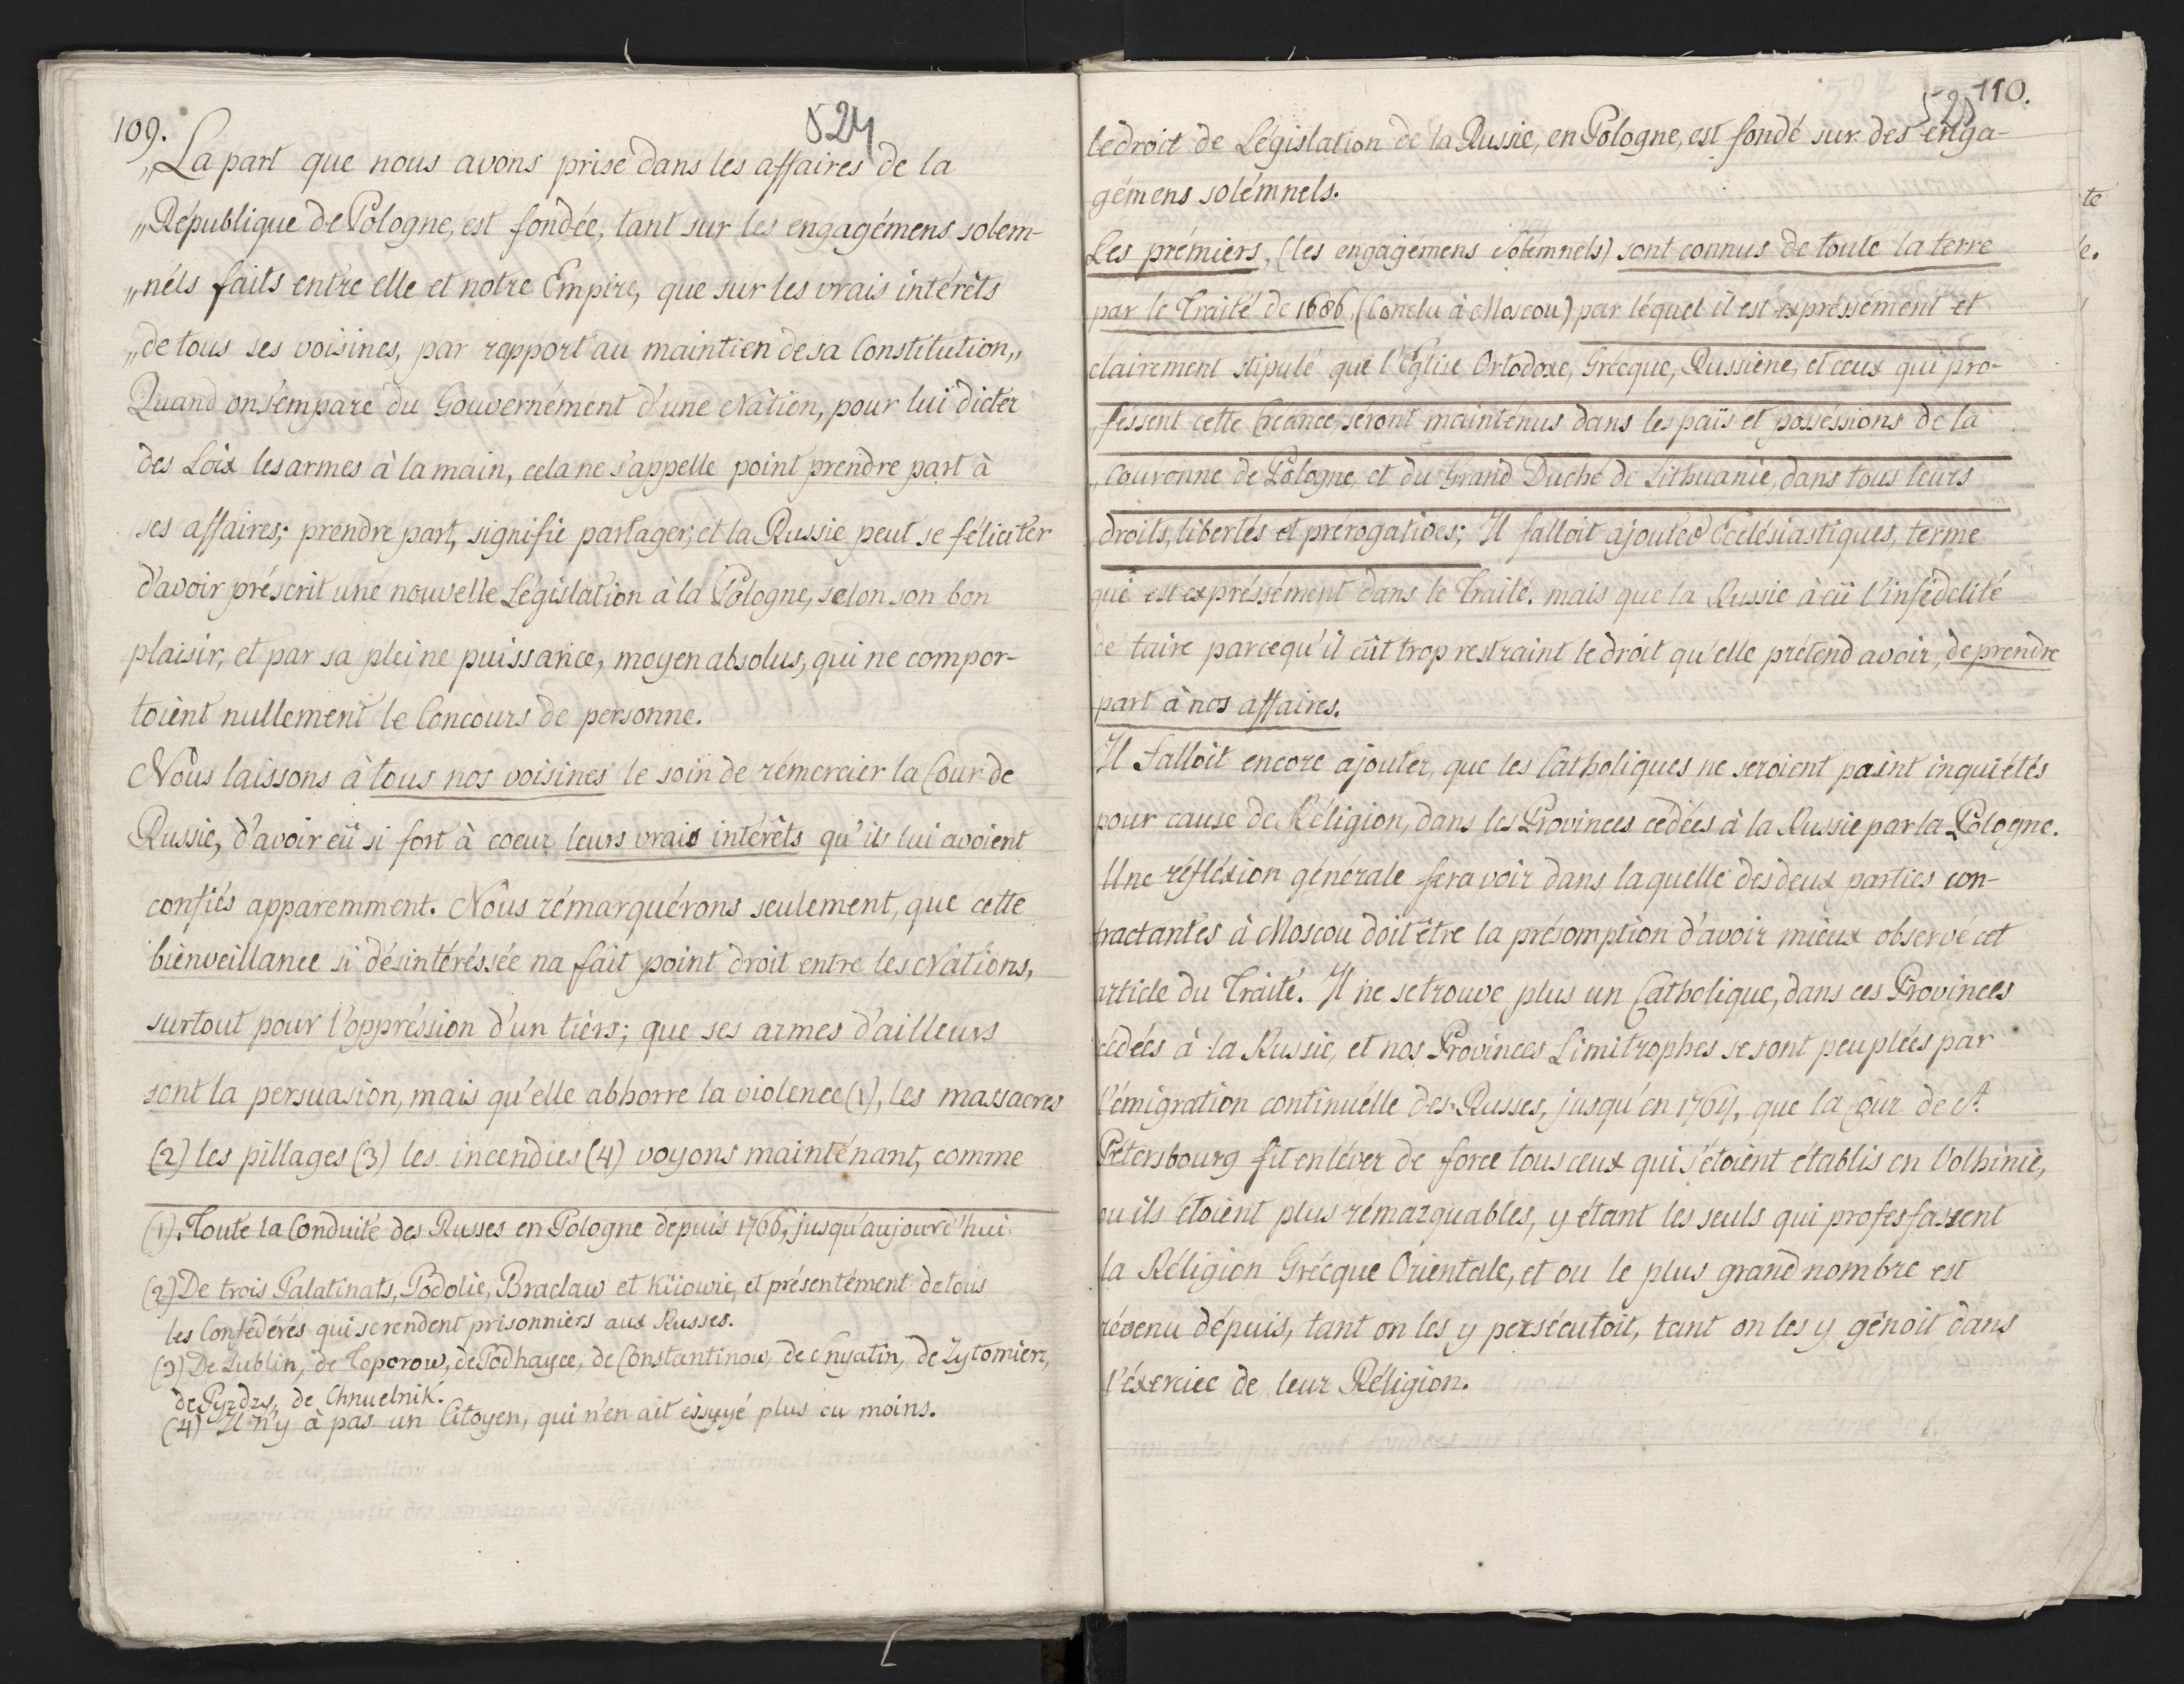 109.
524
„La part que nous avons prise dans les affaires de la
„République de Pologne, est fondée, tant sur les engagémens solem-
„néls faits entre elle et notre Empire, que sur les vrais intérêts
„de tous ses voisines, par rapport au maintien de sa Constitution„
Quand on s'empare du Gouvernément d'une Nation, pour lui dicter
des Loix les armes à la main, cela ne s'appelle point prendre part à
ses affaires; prendre part, signifie partager; et la Russie peut se féliciter
d'avoir préscrit une nouvelle Législation à la Pologne, selon son bon
plaisir, et par sa pleine puissance, moyen absolus, qui ne compor-
toient nullement le Concours de personne.
Nous laissons à tous nos voisines le soin de rémercier la Cour de
Russie, d'avoir eü si fort à coeur leurs vrais intérêts qu'ils lui avoient
confiés apparemment. Nous rémarquérons seulement, que cette
bienveillance si désintéréssée na fait point droit entre les Nations,
surtout pour l'oppréssion d'un tiers; que ses armes d'ailleurs
sont la persuasion, mais qu'elle abhorre la violence (1), les massacres
(2) les pillages (3) les incendies (4) voyons mainténant, comme
(1). Toute la Conduite des Russes en Pologne depuis 1766, jusqu'aujourd'hui.
(2) De trois Palatinats, Podolie, Braclaw et Kiiowie, et présentément de tous
les Confédérés qui se rendent prisonniers aux Russes.
(3) De Lublin, de Toporow, de Podhayce, de Constantinow, de Snyatin, de Zytomierz,
de Pyzdry, de Chnuelnik.
(4) Il n'y à pas un Citoyen, qui n'en ait éssuyé plus ou moins.
110.
525
le droit de Législation de la Russie, en Pologne, est fondé sur des enga-
gémens solémnels.
Les prémiers, (les engagémens solémnels) sont connus de toute la terre
par le Traité de 1686, (Conclu à Moscou) par léquel il est expréssément et
clairement stipulé que l'Eglise Ortodoxe, Grécque, Russiene, et ceux qui pro-
„fessent cette Créance, seront maintenus dans les païs et posséssions de la
„Couronne de Pologne, et du Grand Duché de Lithuanie, dans tous leurs
„droits, libertés et prérogatives; Il falloit ajouter Ecclésiastiques, terme
qui est expréssément dans le Traité. mais que la Russie à eü l'infidélité
de taire parcequ'il eût trop restraint le droit qu'elle prétend avoir, de prendre
part à nos affaires.
Il falloit encore ajouter, que les Catholiques ne seroient point inquiétés
pour cause de Réligion, dans les Provinces cedées à la Russie par la Pologne.
Une réfléxion générale fera voir dans laquelle des deux parties con-
tractantes à Moscou doit être la présomption d'avoir mieux observé cet
article du Traité. Il ne se trouve plus un Catholique, dans ces Provinces
cédées à la Russie, et nos Provinces Limitrophes se sont peuplées par
l'émigration continuélle des Russes, jusqu'en 1764, que la Cour de St.
Pétersbourg fit enléver de force tous ceux qui s'étoient établis en Volhinie,
ou ils étoient plus rémarquables, y étant les seuls qui professassent
la Réligion Grécque Orientale, et ou le plus grand nombre est
révenu dépuis, tant on les y persécutoit, tant on les y gênoit dans
l'éxercice de leur Réligion.
te
le.